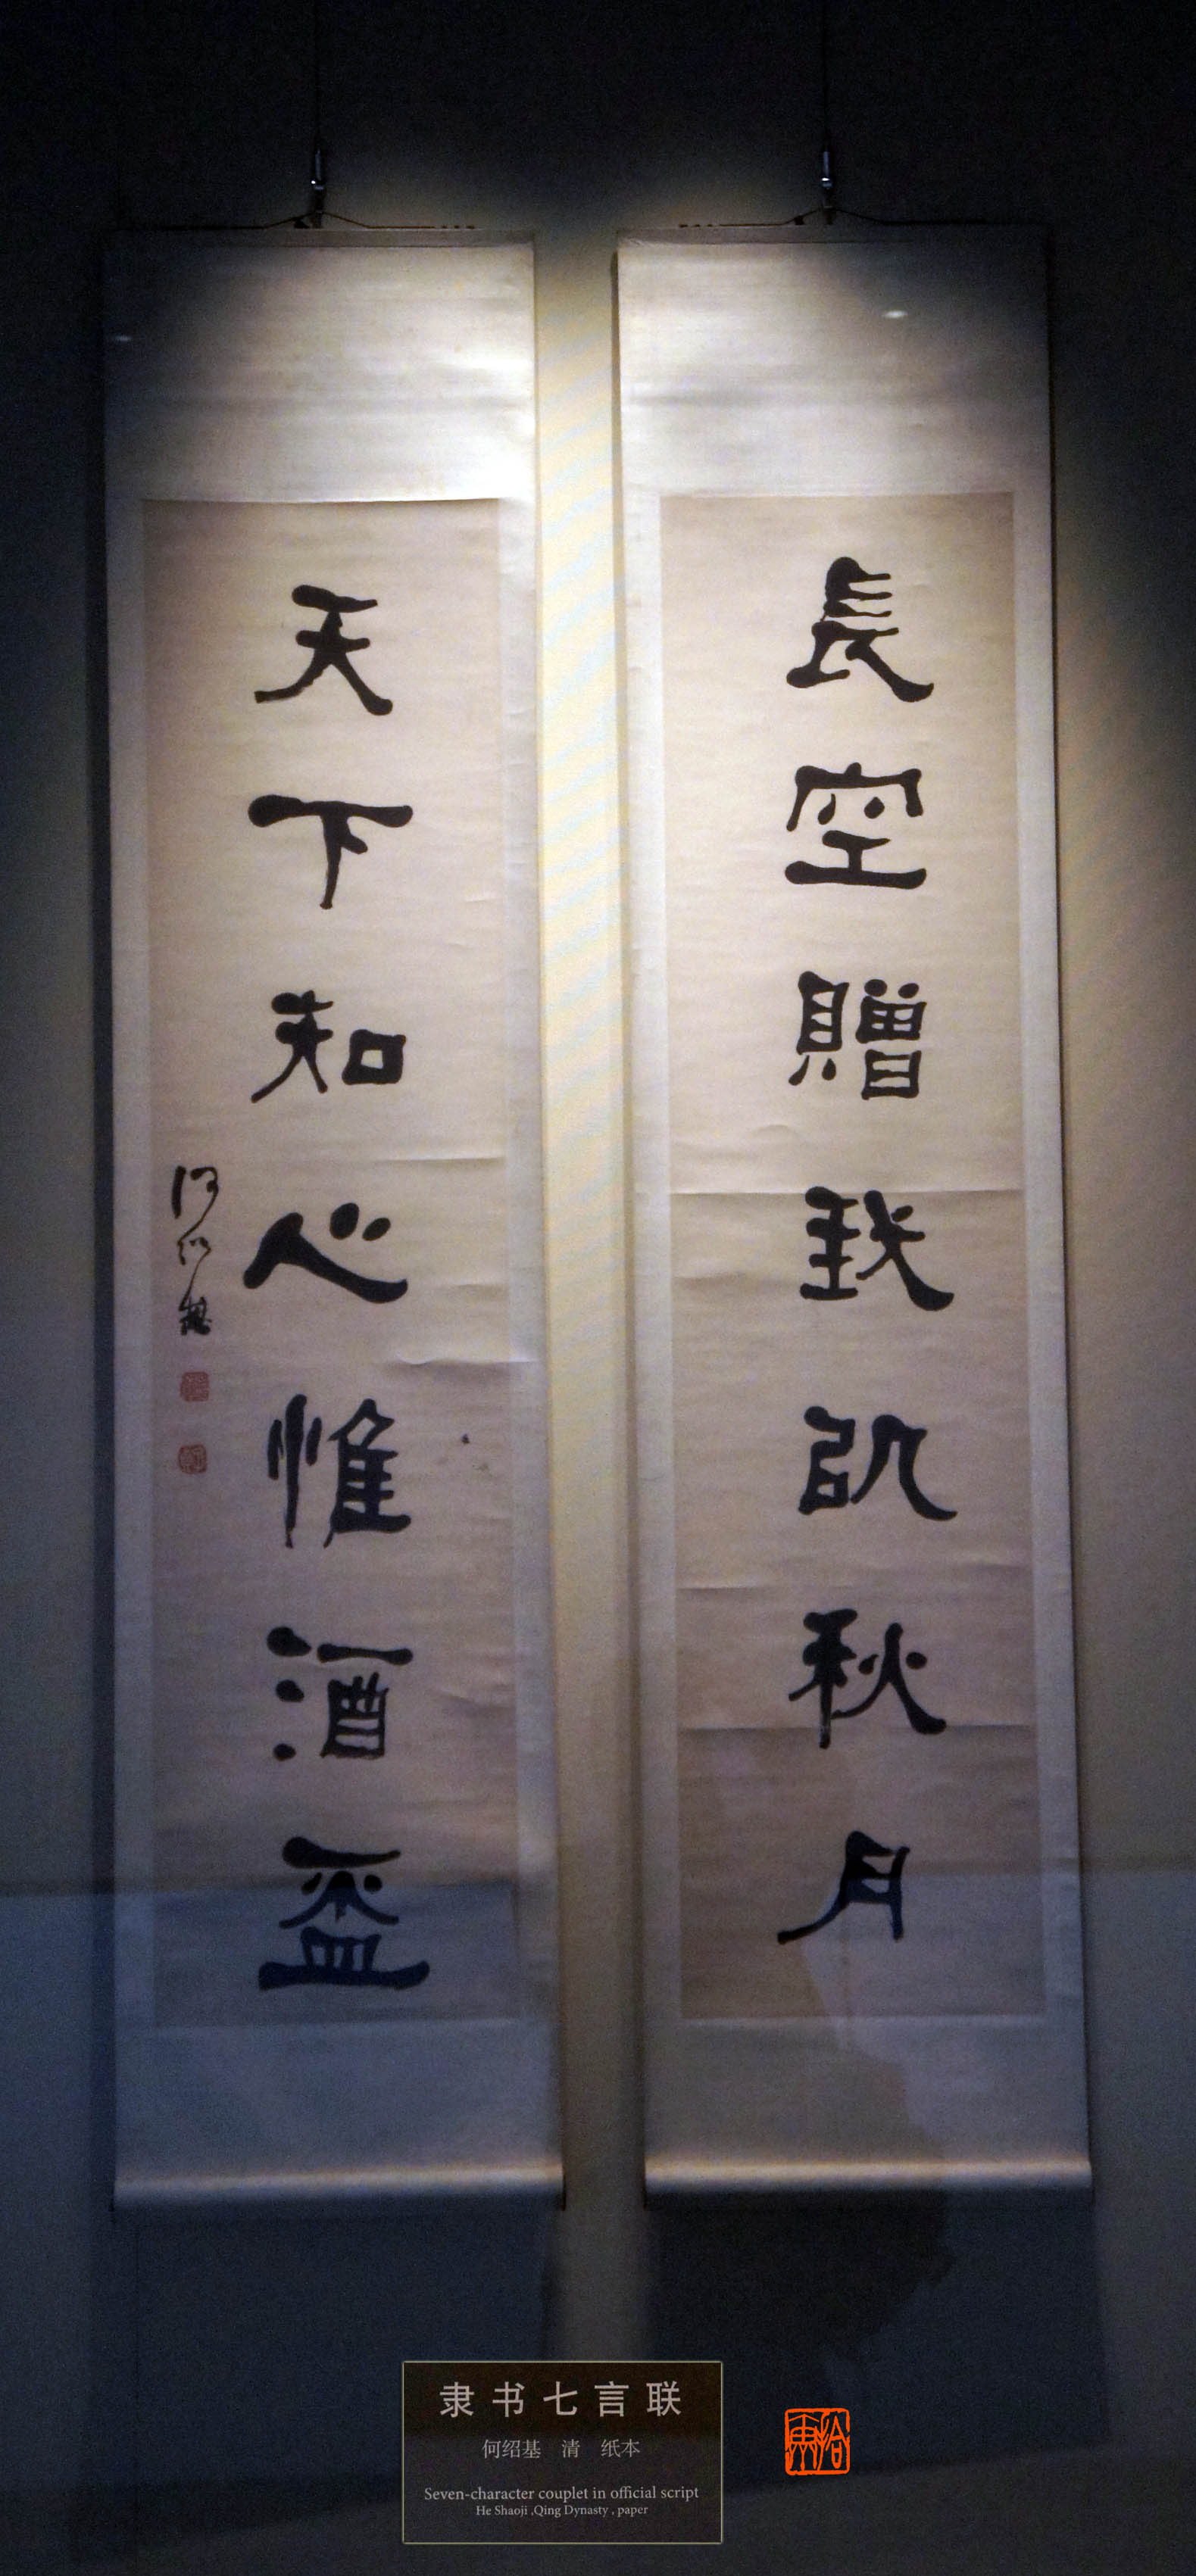 長空贈我以秋月
天下知心惟酒盃
何紹基
隶书七言联
何绍基 清 纸本
Seven-character couplet in official script
He Shaoji ,Qing Dynasty , paper